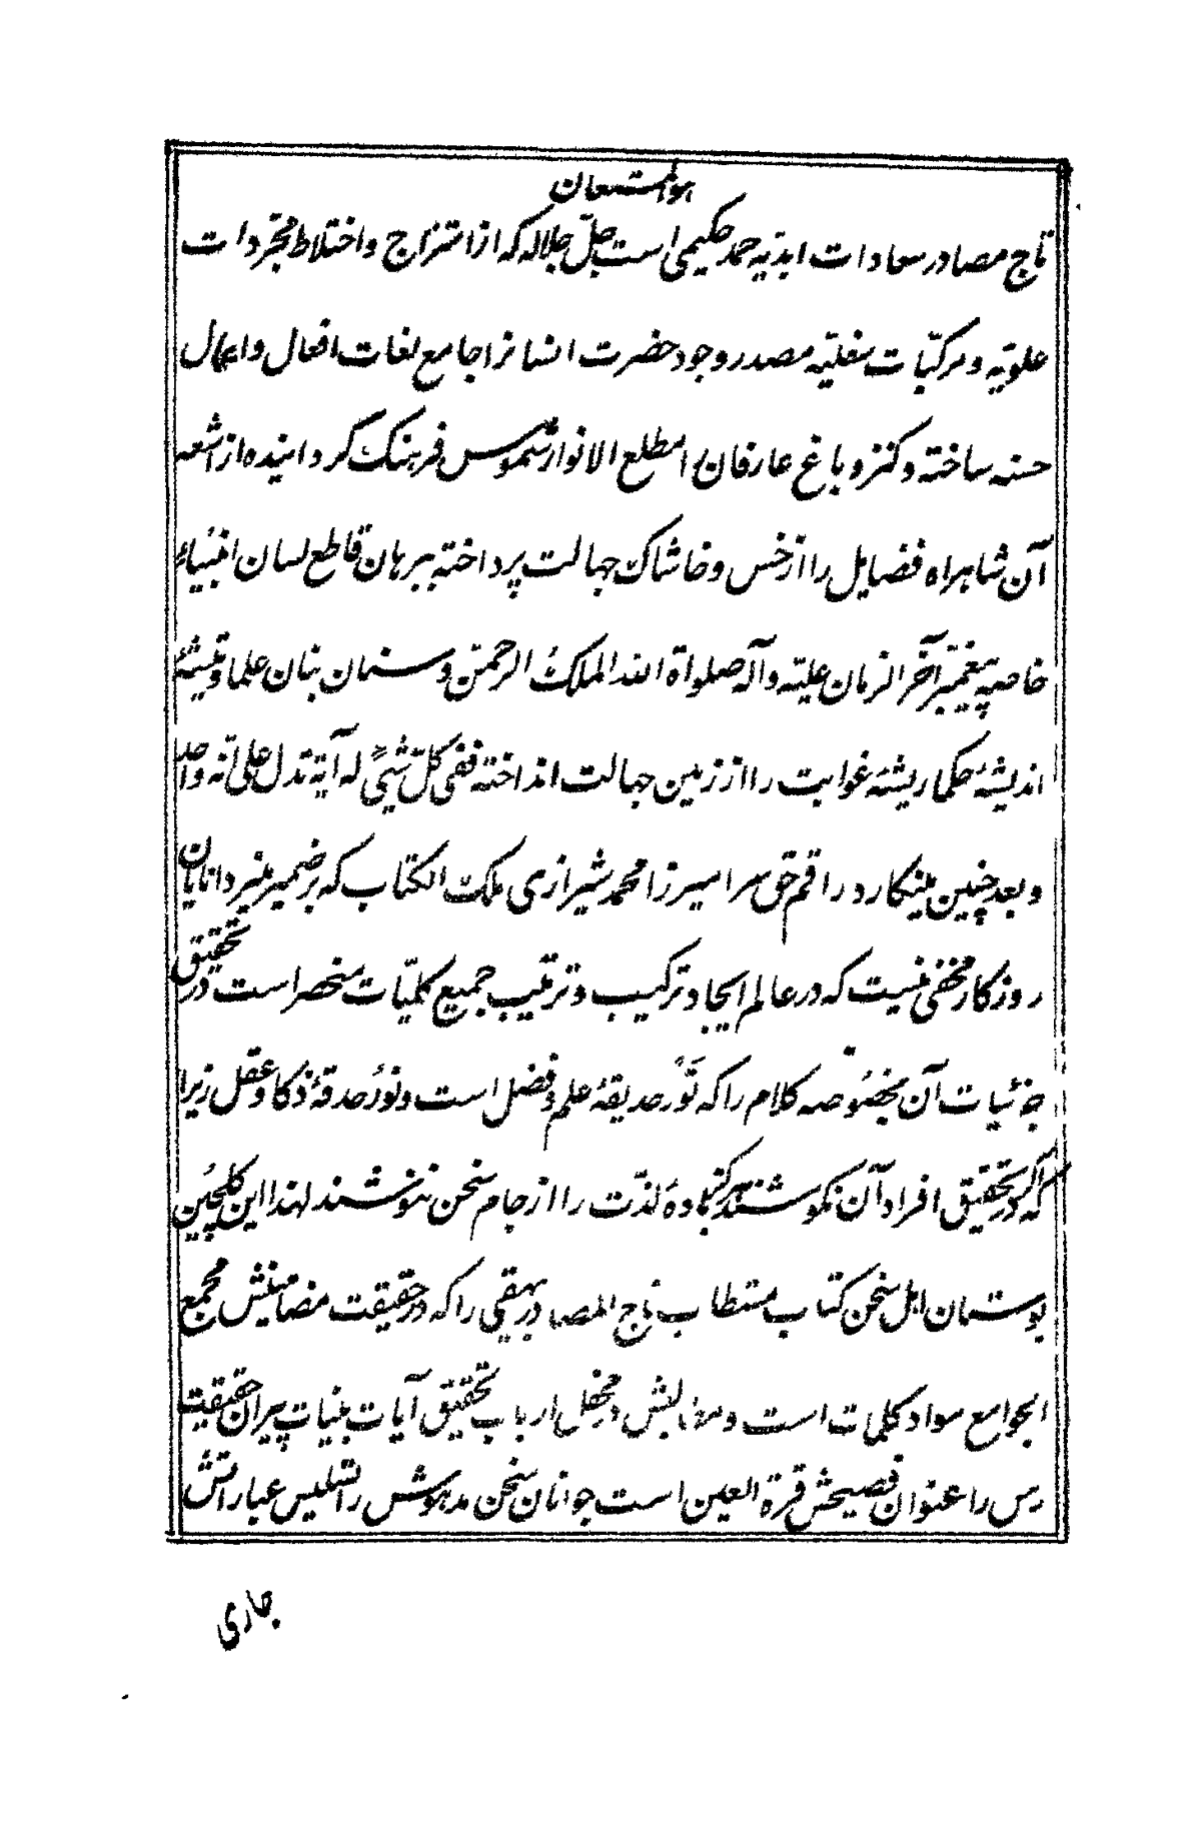 هوالمستعان
تاج مصادر سعادات ابدیّه حمد حکیمی است جلّ جلاله که از امتزاج و اختلاط مجّردات
علویّه و مرکبّات سفلیّه مصدر وجود حضرت انسانرا جامع لغات افعال و اعمال
حسنه ساخته و کنز و باغ عارفانرا مطلع الانوار شموس فرهنک گردانیده از اشعه
آن شاهراه فضایل را از خس و خاشاک جهالت پرداخته ببرهان قاطع لسان انبیاء
خاصه پیغمبر آخر الزمان علیه و آله صلواة الله الملک الرحمن و سنان بنان علما و تیشهٔ
اندیشهٔ حکما ریشهٔ غوایت را از زمین جهالت انداخته ففی کلّ شیٍٔ له آیة تدل علی انّه واحد
و بعد چنین مینکارد راقم حق سرا میرزا محمد شیرازی ملک الکتاب که بر ضمیر منیر دانایان
روزکار مخفی نیست که در عالم ایجاد ترکیب و ترتیب جمیع کلیّات منحصر است در تحقیق
جزئیات آن بخصُوصه کلام را که نَوْر حدیقهٔ علم و فضل است و نُور حدقهٔ ذکا و عقل زیرا
که اگر در تحقیق افراد آن نکوشند هرکز بادهٔ لذّت را از جام سخن ننوشند لهذا این کلچین
بوستان اهل سخن کتاب مستطاب تاج المصادر بیهقی را که در حقیقت مضامینش مجمع
الجوامع مواد کلمات است و مطالبش در محفل ارباب تحقیق آیات بینات پیران حقیقت
رس را عنوان فصیحش قرة العین است جوانان سخن مدهوش را سلیس عباراتش
جاری